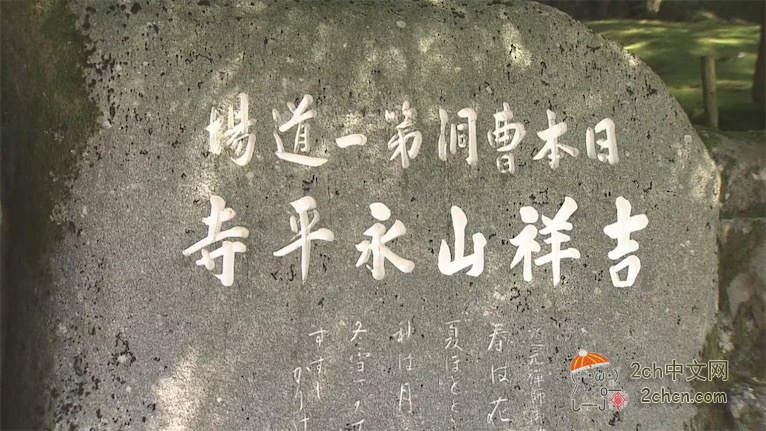 日本曹洞第一道場
吉祥山永平寺
道元禅師御
春は花
夏ほとと
秋は月
冬雪さ
すずし
かりけ
2ch中文网
2chcn.com